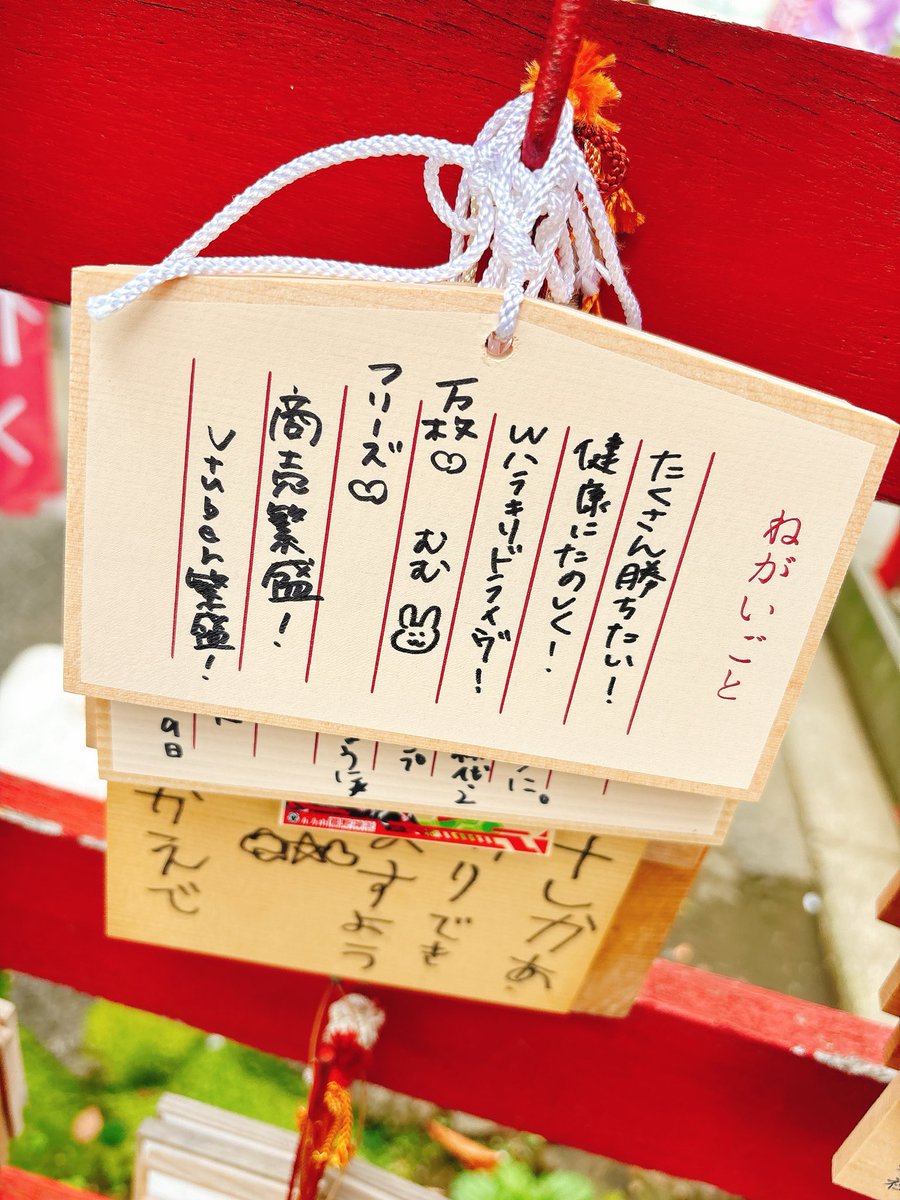 ねがいごと
たくさん勝ちたい!
健康にたのしく!
Wハラキリドライヴ!
万枚♡ むむ
フリーズ♡
商売繁盛!
Vtuber繁盛!
に。
ように
9日
りでき
のすよう
かえで